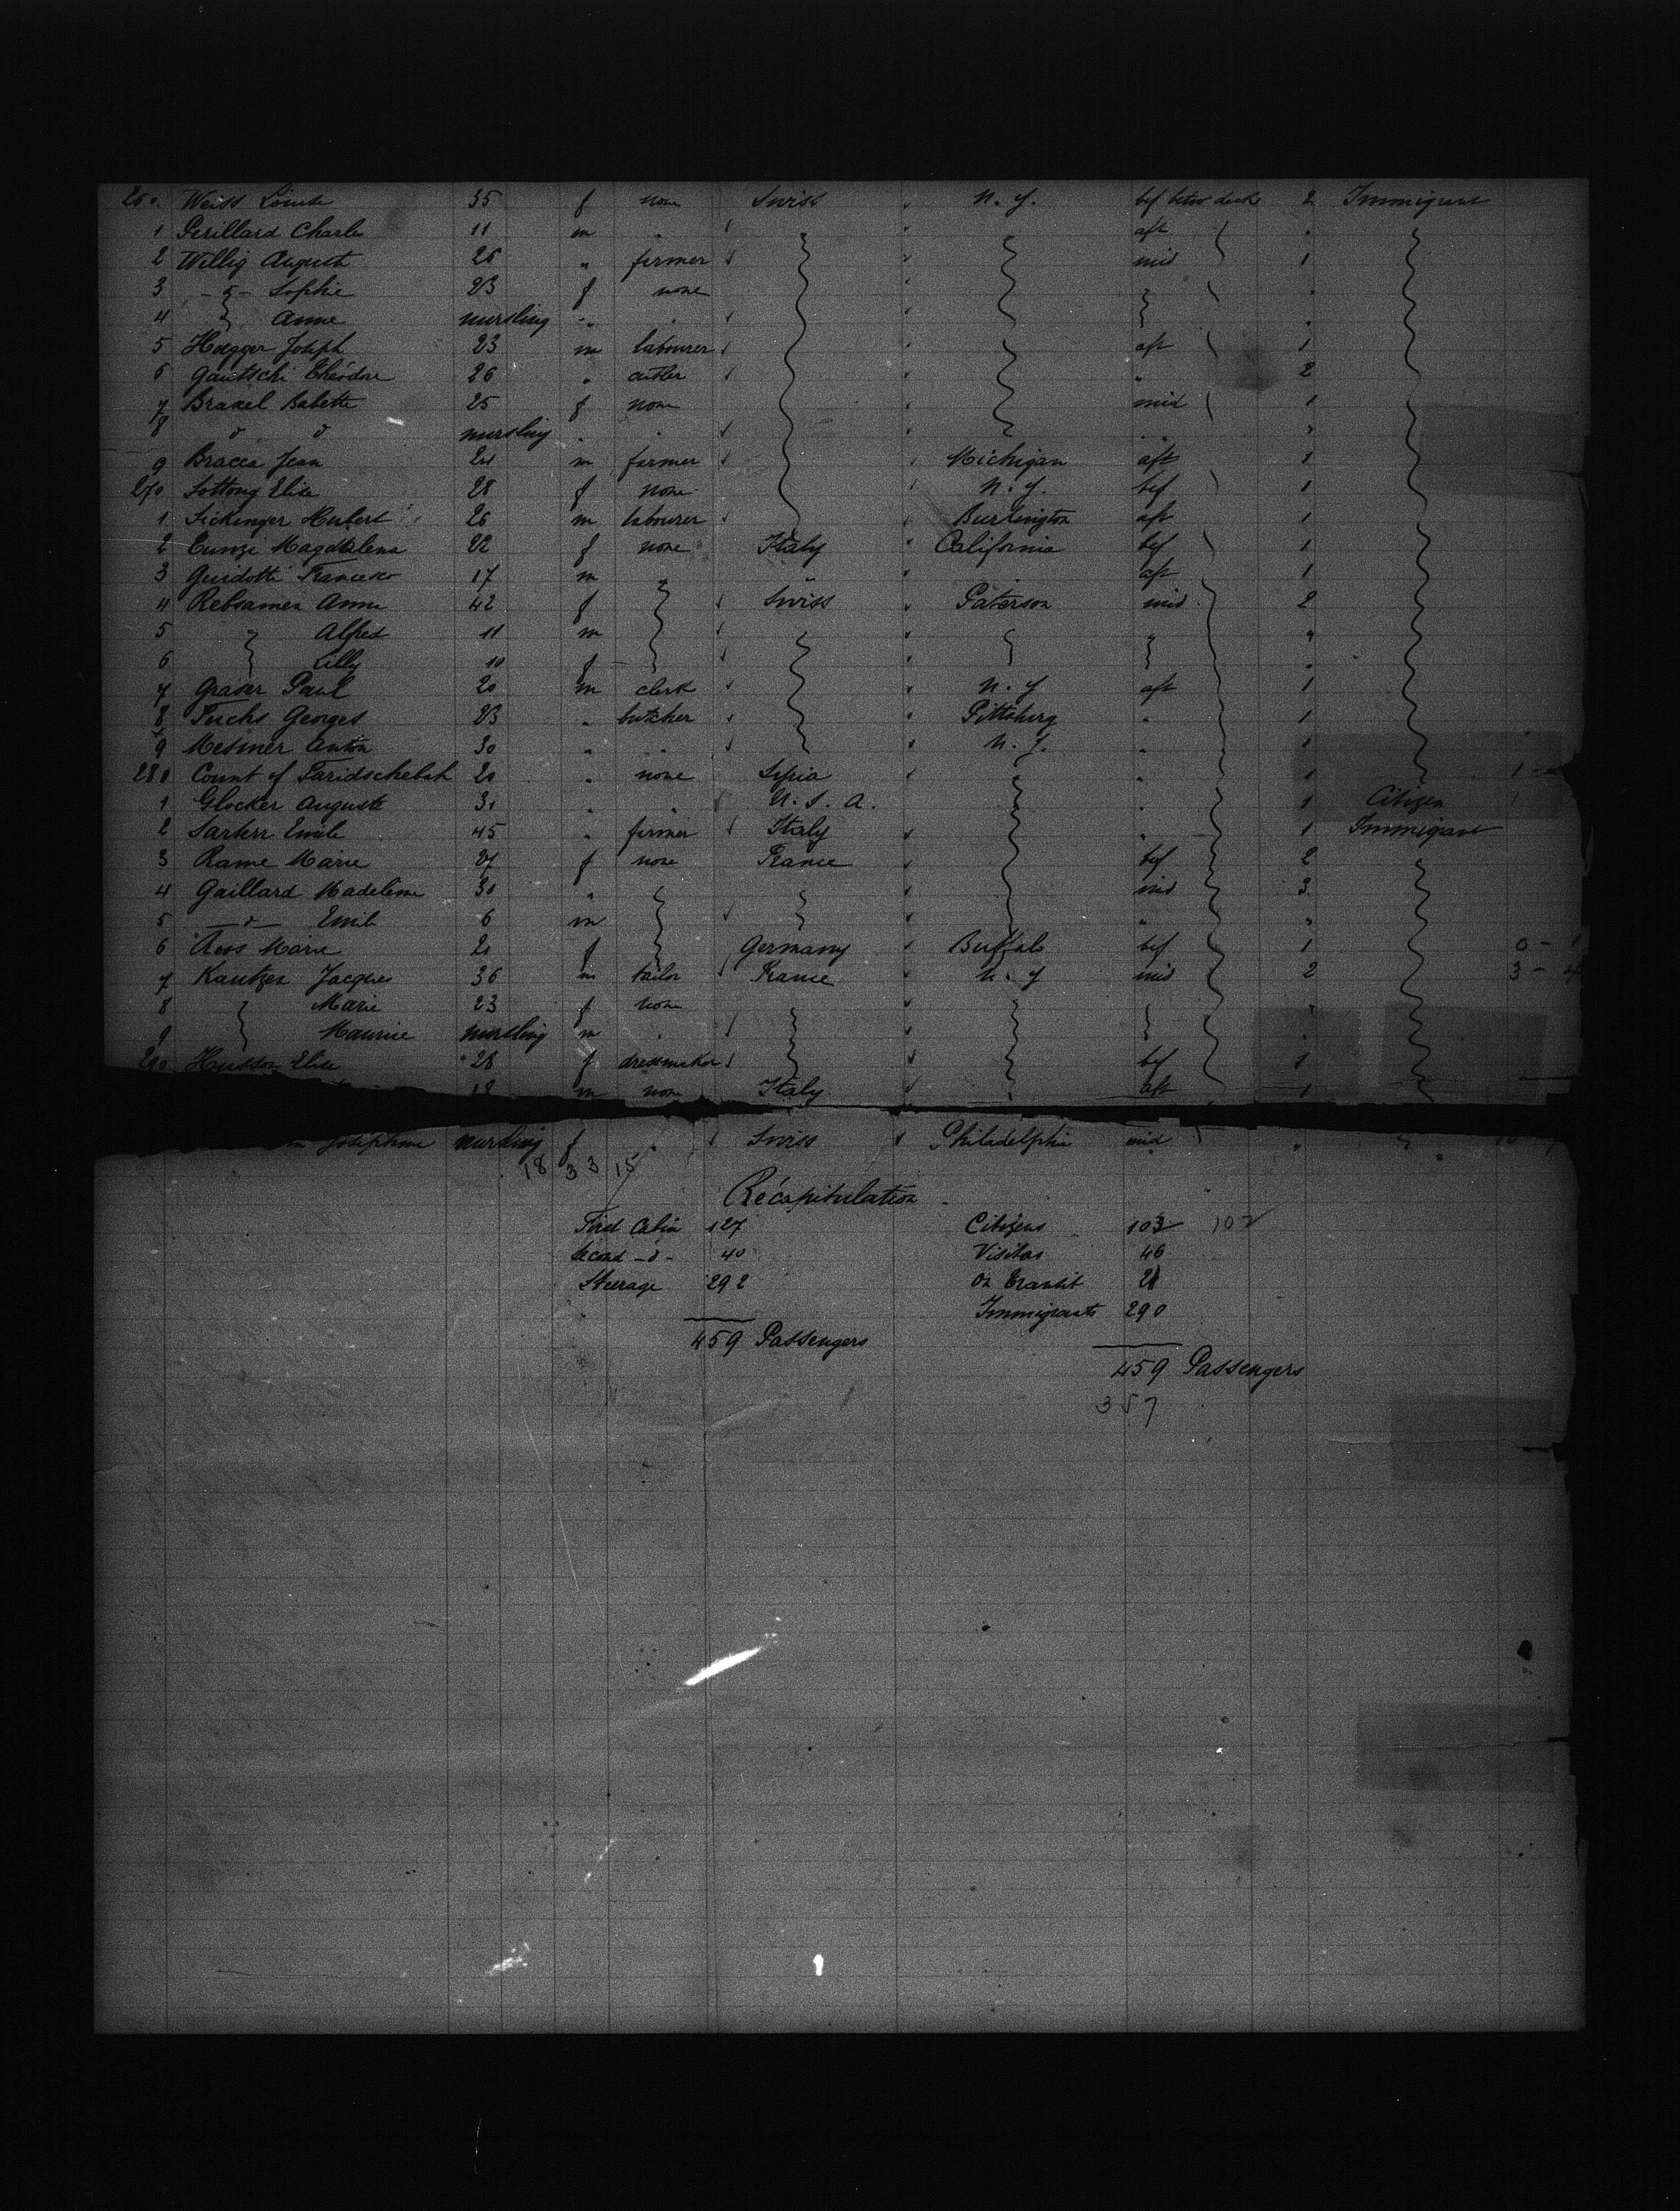 260 Weiss Louise 35 f none Swiss " N. Y. bef betw deck 2 Immigrant
1 Charles 11 m " " aft "
2 Willig August 26 " farmer " mid 1
3 -"- Sophie 23 f none " "
4 Anne nursling " " " "
5 Hoegger Joseph 23 m labourer " aft 1
6 Gautschi Théodore 26 " cutler " " 2
7 Babette 25 f none " mid 1
8 d d nursling " " " " "
9 Bracca Jean 21 m farmer " Michigan aft 1
270 Elise 28 f none " N. Y. bef 1
1 Sickinger Hubert 26 m labourer " Burlington aft 1
2 Magdalena 22 f none Italy " California bef 1
3 Guidotti Francesco 17 m " " " aft 1
4 Rebsamen Anna 42 f Swiss " Paterson mid 2
5 Alfred 11 m " " "
6 Lilly 10 f " "
7 Graser Paul 20 m clerk " N. Y aft 1
8 Fuchs Georges 23 " butcher " Pittsburg " 1
9 Mesmer Anton 30 " " " N. Y. " 1
280 Count of Faridschebah 20 " none Syria " " 1 1 -
1 Glocker Auguste 31 " " U. S. A. " 1 Citizen 1
2 Emile 45 " farmer Italy " " 1 Immigrant
3 Rame Marie 27 f none France " bef 2
4 Gaillard Madeleine 30 " " mid 3
5 -d- Emile 6 m " " "
6 Marie 21 f Germany " Buffalo bef 1 0 - 1
7 Kautzen Jacques 36 m tailor France " N. Y mid 2 3 - 4
8 Marie 23 f none " "
9 Maurice nursling m " " "
290 Husson Elise 28 f dressmaker " bef 1
18 m none Italy " aft 1
Josephine nursling f " Swiss Philadelphia mid "
18 33 15
Récapitulation
First Cabin 127 Citizens 103 102
Second -d- 40 Visitors 46
Steerage 292 On Transit
Immigrants 290
459 Passengers
459 Passengers
357